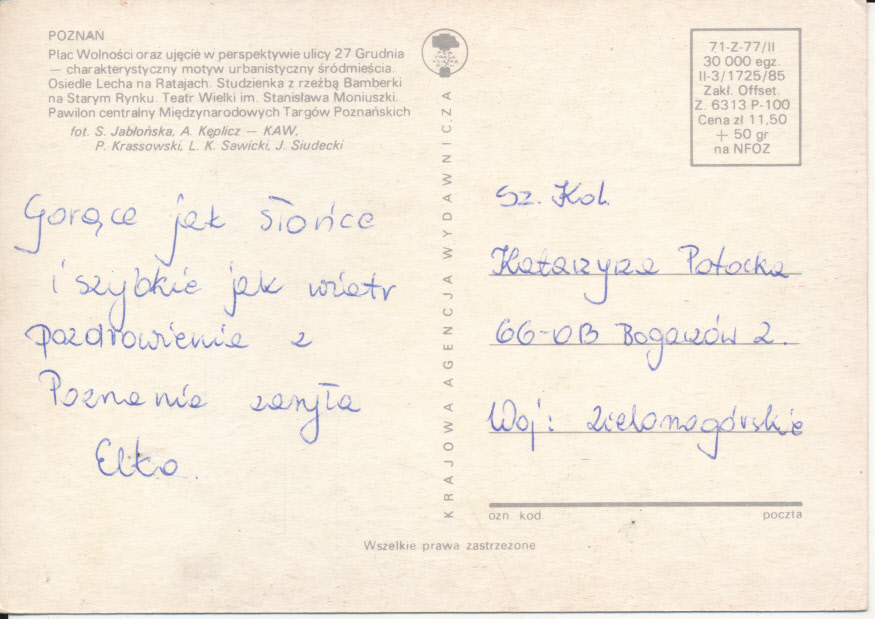 POZNAŃ
Plac Wolności oraz ujęcie w perspektywie ulicy 27 Grudnia
— charakterystyczny motyw urbanistyczny śródmieścia.
Osiedle Lecha na Ratajach. Studzienka z rzeźbą Bamberki
na Starym Rynku. Teatr Wielki im. Stanisława Moniuszki.
Pawilon centralny Międzynarodowych Targów Poznańskich
fot. S. Jabłońska, A. Kęplicz — KAW,
P. Krassowski, L. K. Sawicki, J. Siudecki
Gorące jak słońce
i szybkie jak wiatr
pozdrowienia z
Poznania
Elka.
KRAJOWA AGENCJA WYDAWNICZA
71-Z-77/II
30 000 egz.
II-3/1725/85
Zakł. Offset.
Z. 6313 P-100
Cena zł 11,50
+ 50 gr
na NFOZ
Sz. Kol.
Katarzyna Potocka
2.
Woj: zielonogórskie
ozn. kod.
poczta
Wszelkie prawa zastrzeżone